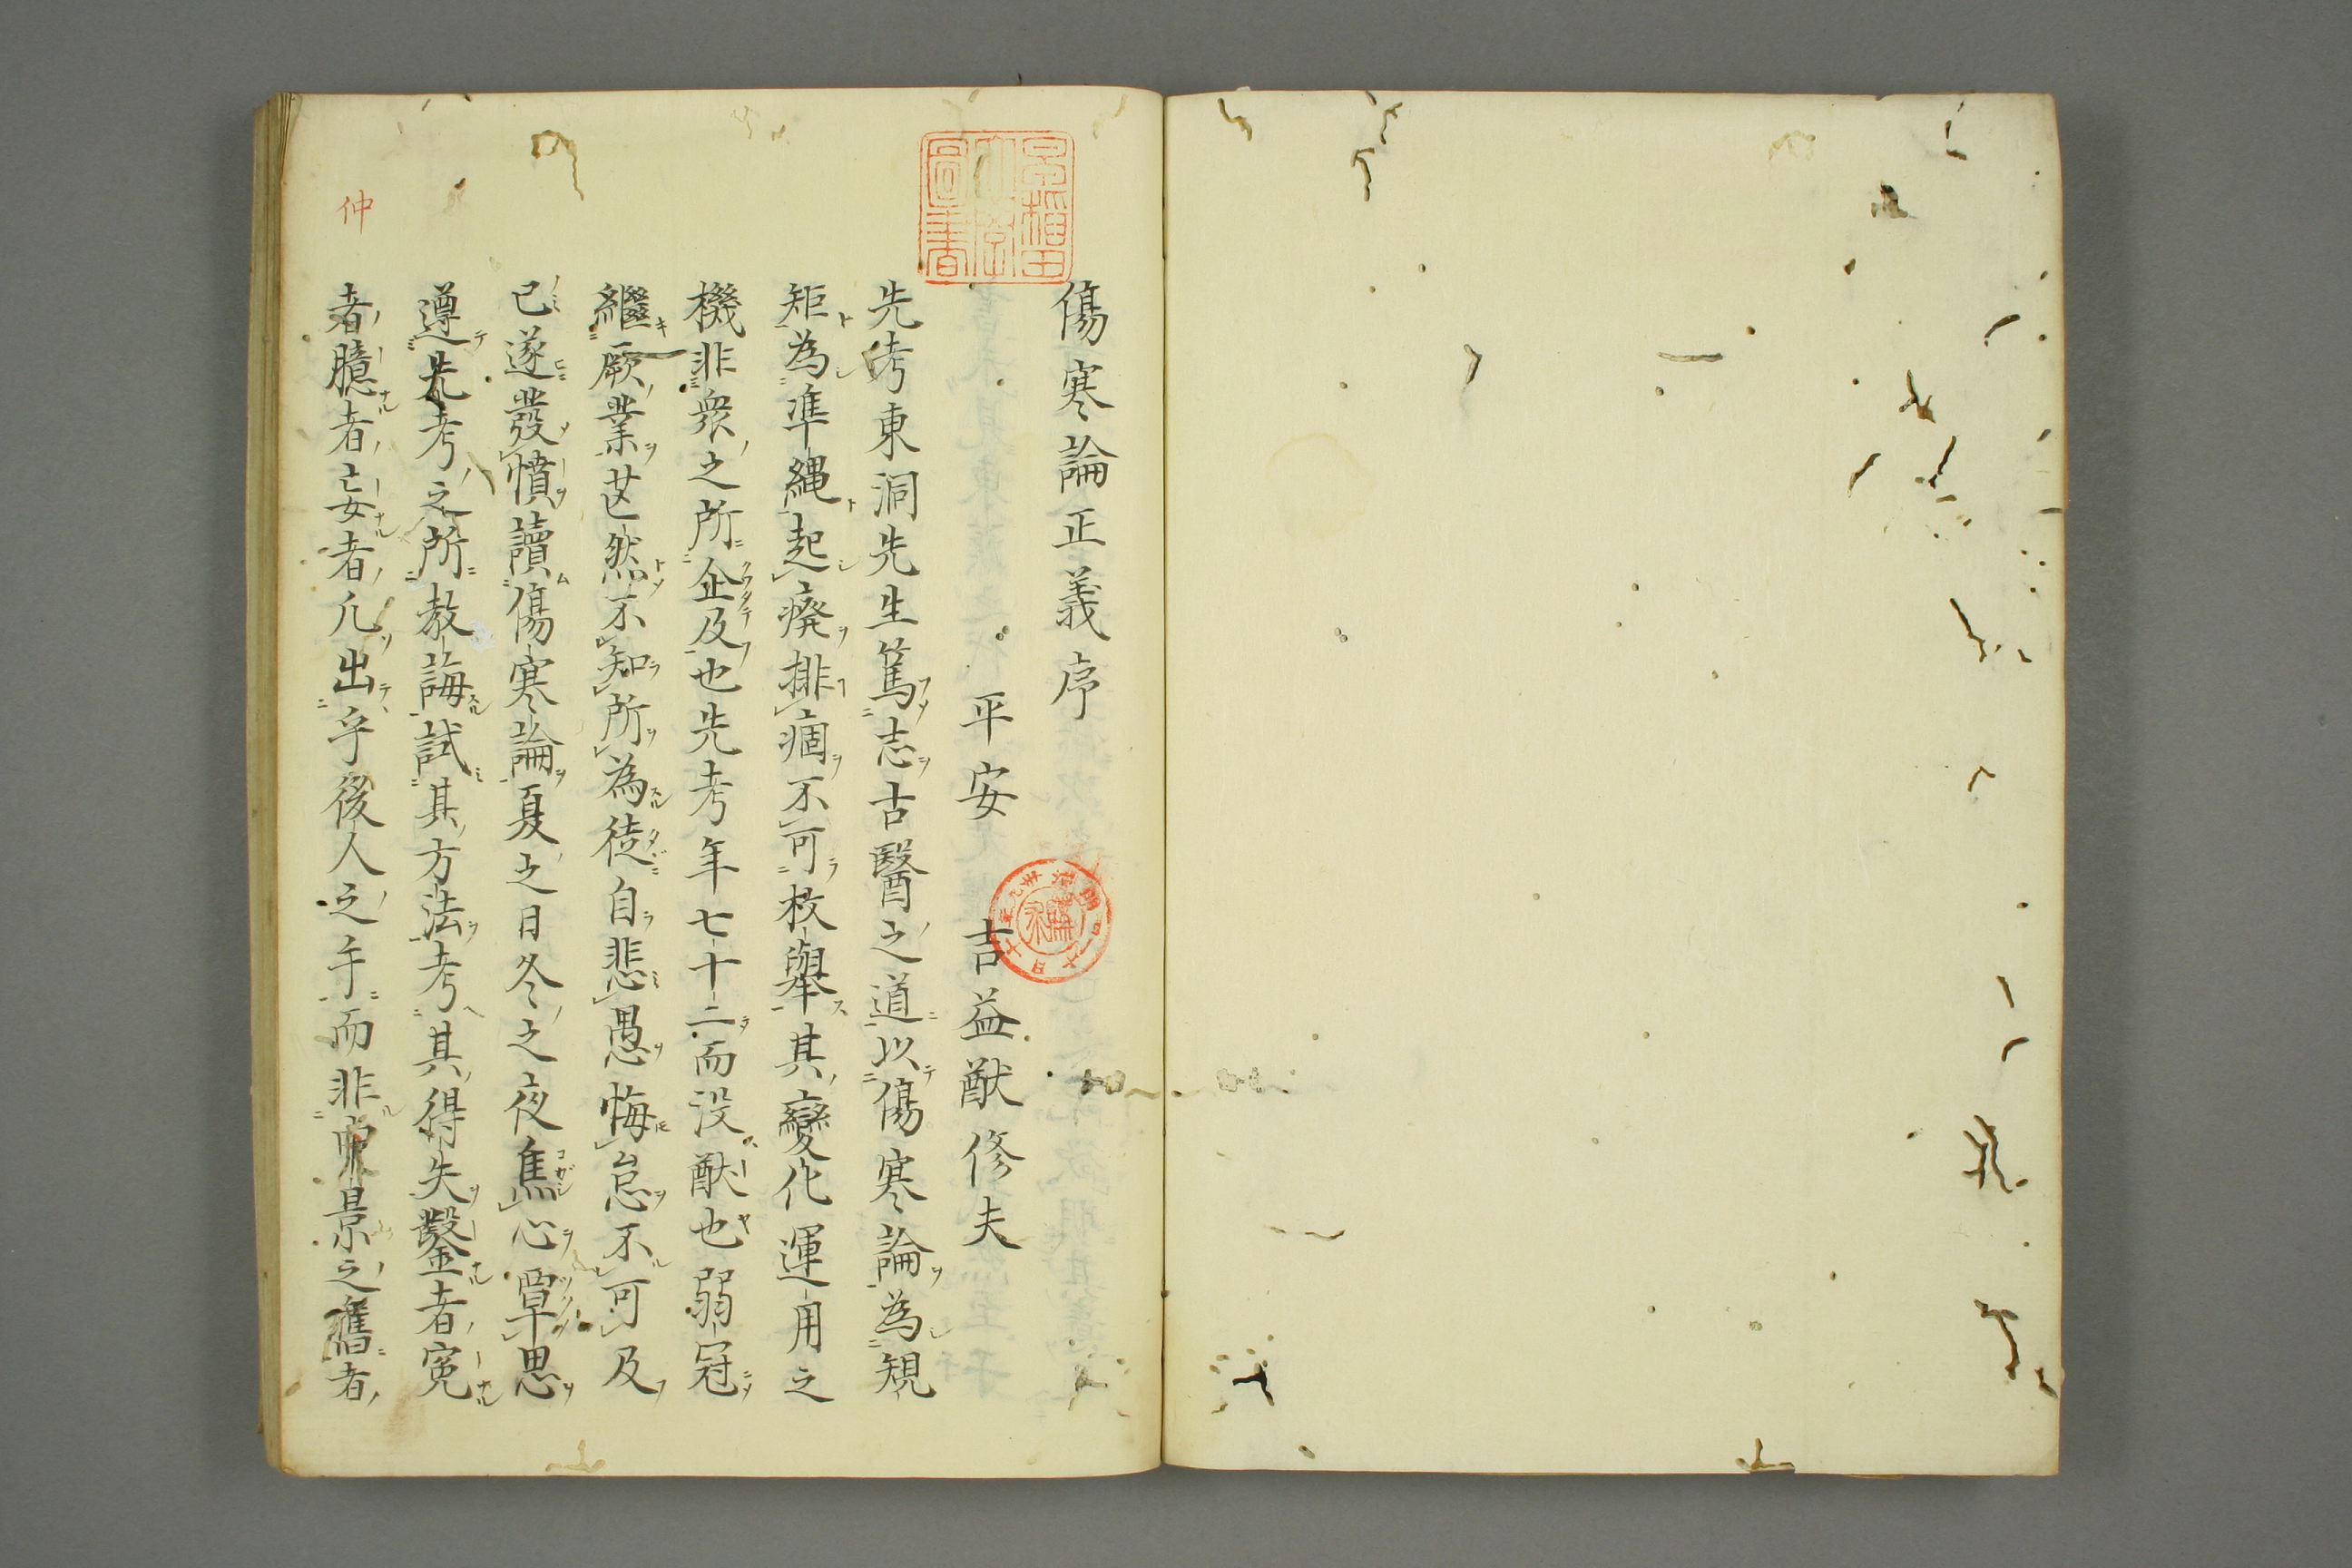 傷寒論正義序
平安　吉益猷修夫
先考東洞先生篤志古醫之道以傷寒論為規
矩為準縄起癈排痼不可枚擧其變化運用之
機非衆之所企及也先考年七十二而没猷也弱冠
繼厥業芒然不知所為徒自悲愚悔怠不可及
已遂發憤讀傷寒論夏之日冬之夜焦心覃思
遵先考之所教誨試其方法考其得失鑿者寃
者臆者妄者凢出乎後人之手而非景之舊者
仲
圖書